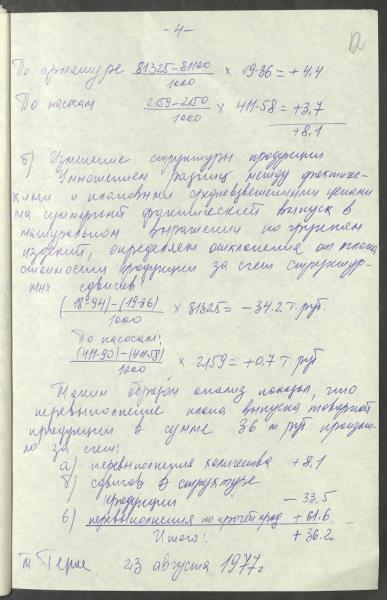 -4-
По арматуре 81325-81100/1000 × 19-36 = +4,4
По насосам 2159-2150/1000 × 411-58 = +3,7
+8,1
б) Изменение структуры продукции
Умножением разниц между фактичес-
кими и плановыми средневзвешенными ценами
на суммарный фактический выпуск в
натуральном выражении по группам
изделий, определяем отклонения от плана
стоимости продукции за счет структур-
ных сдвигов:
(18-94)-(19-36)/1000 × 81325 = -34.2 т. руб.
По насосам:
(411-90)-(411-58)/1000 × 2159 = +0.7 т. руб.
Таким образом анализ показал, что
перевыполнение плана выпуска товарной
продукции в сумме 36 т руб произош-
ло за счет:
а) перевыполнения количества +8,1
б) сдвигов в структуре
продукции - 33,5
в) перевыполнения по прочей прод +61.6
Итого: +36.2
23 августа 1977г